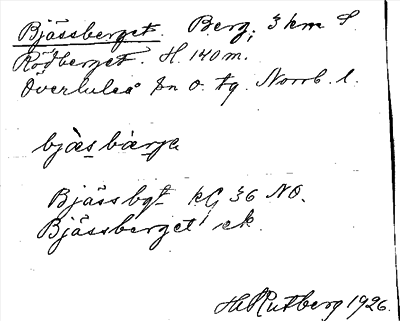 Bjässberget. Berg, 3 km S.
Rödberget. H. 140 m.
Överluleå sn o. tg. Norrb. l.
bjæ̀sbærje
Bjässbgt kG 36 NO.
Bjässberget ek.
H. Rutberg 1926.